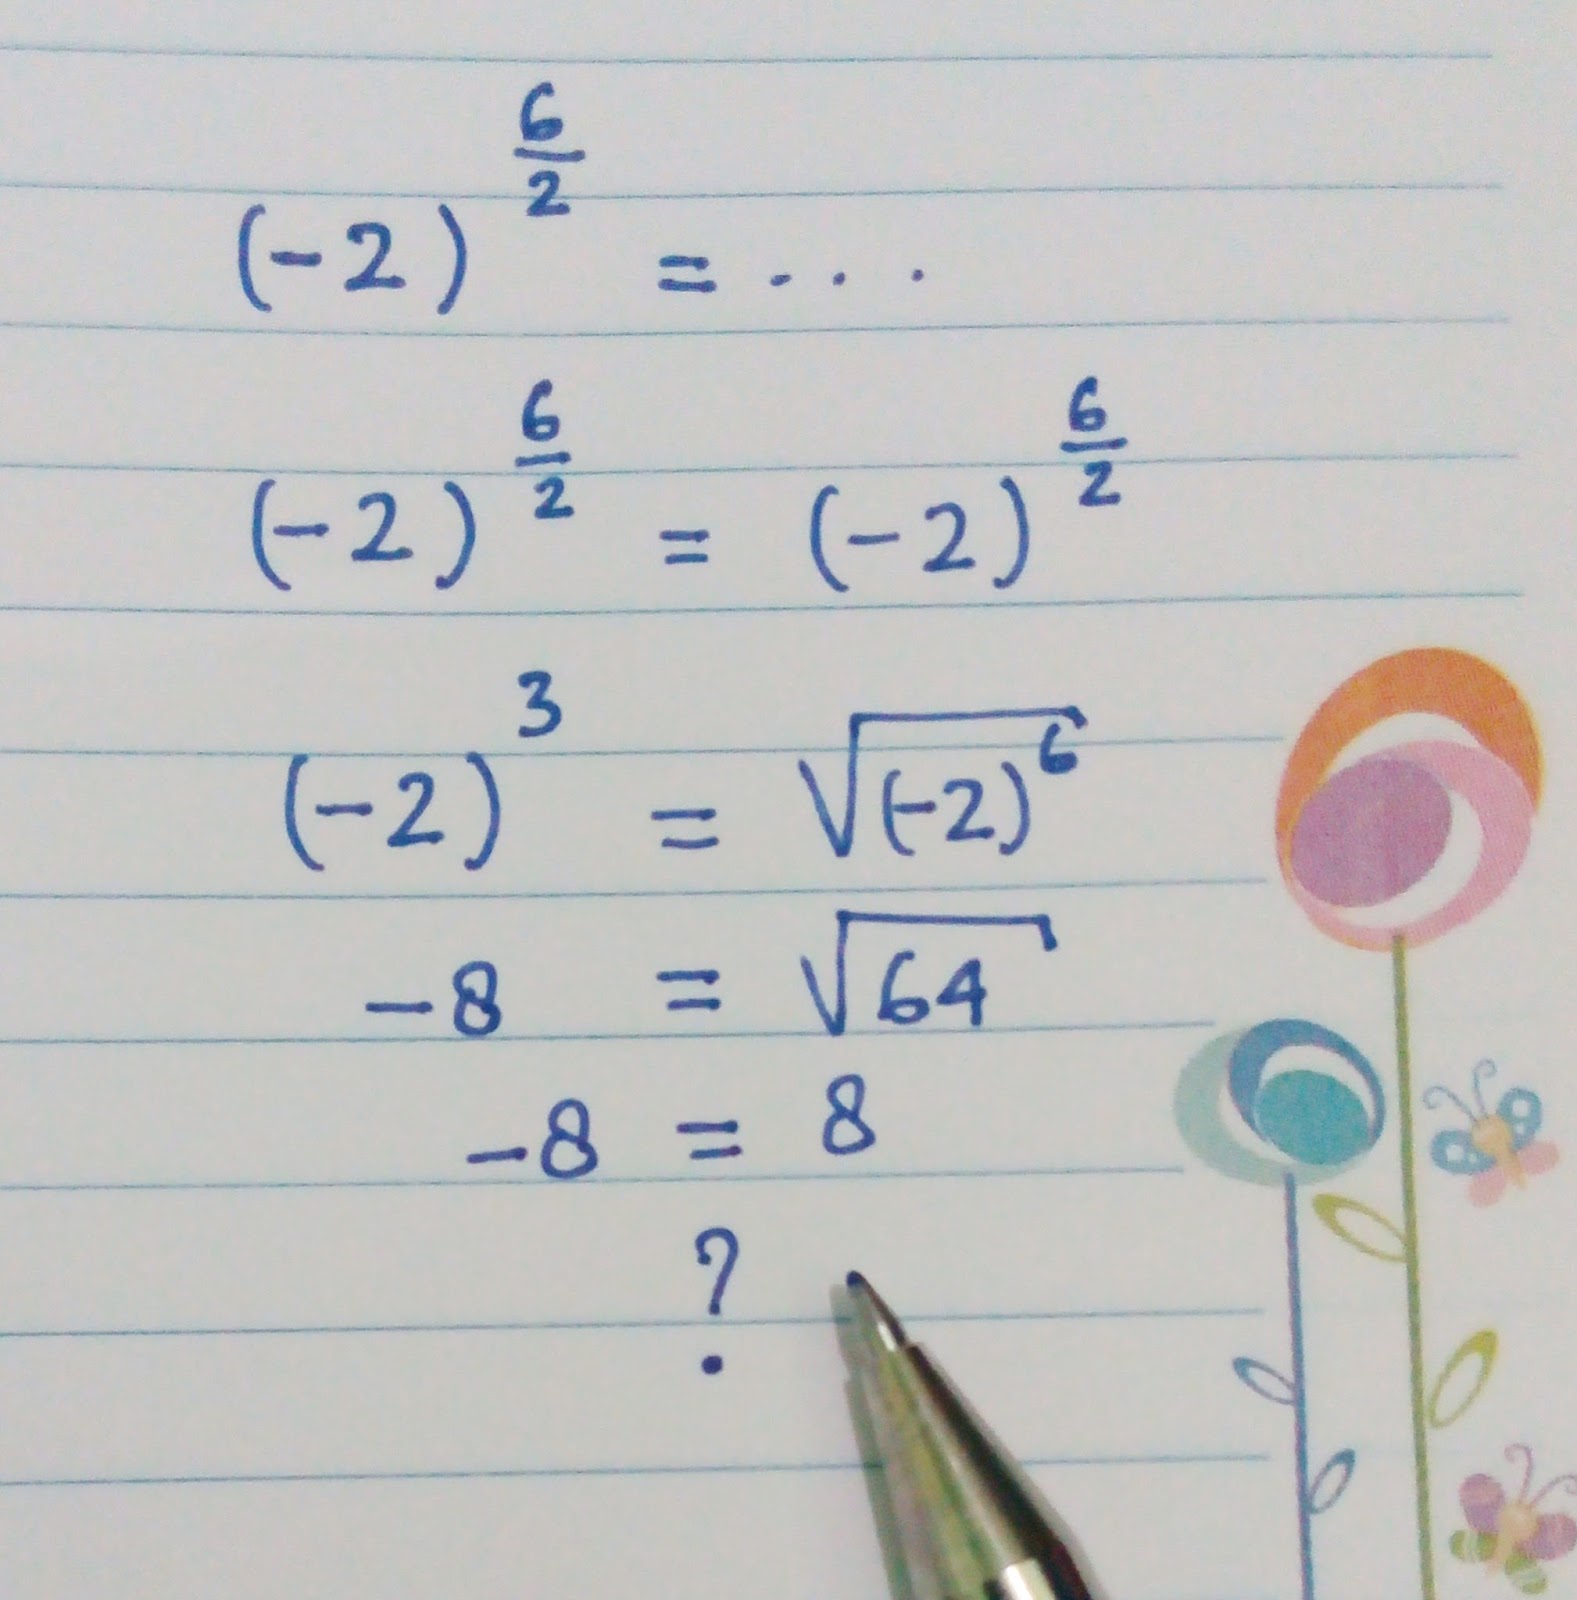 (-2)^(6/2) = ...
(-2)^(6/2) = (-2)^(6/2)
(-2)^3 = √((-2)^6)
-8 = √64
-8 = 8
?